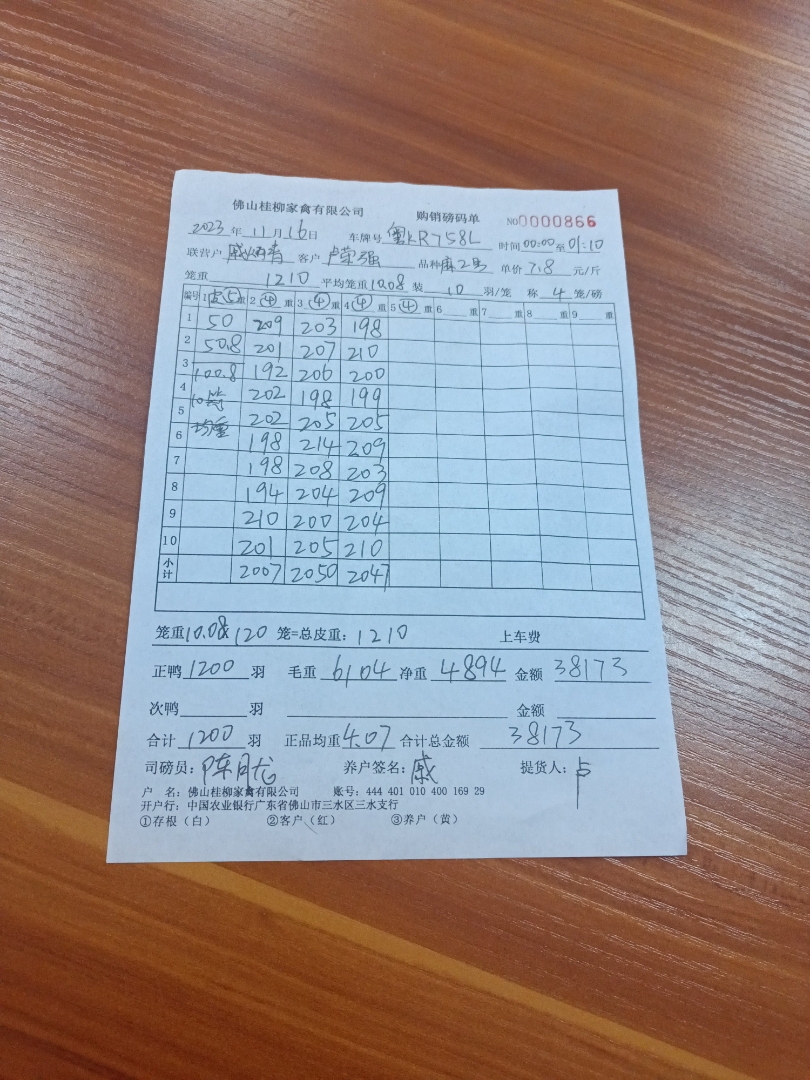 佛山桂柳家禽有限公司 购销磅码单 NO0000866
2023年11月16日 车牌号粤KR758L 时间00:00至01:10
联营户戚 客户卢荣强 品种麻2号 单价7.8元/斤
笼重1210平均笼重10.08装10羽/笼 称4笼/磅
编号 1 ⑤重 2④重 3④重 4④重 5④重 6重 7重 8重 9重
1 50 209 203 198
2 50.8 201 207 210
3 100.8 192 206 200
4 10笼 202 198 199
5 均重 202 205 205
6 198 214 209
7 198 208 203
8 194 204 209
9 210 200 204
10 201 205 210
小计 2007 2050 2047
笼重10.08 120笼=总皮重：1210 上车费
正鸭1200羽 毛重6104净重4894金额38173
次鸭羽 金额
合计1200羽 正品均重4.07合计总金额38173
司磅员：陈月龙 养户签名：戚 提货人：卢
户 名：佛山桂柳家禽有限公司 账号：444 401 010 400 169 29
开户行：中国农业银行广东省佛山市三水区三水支行
①存根（白） ②客户（红） ③养户（黄）